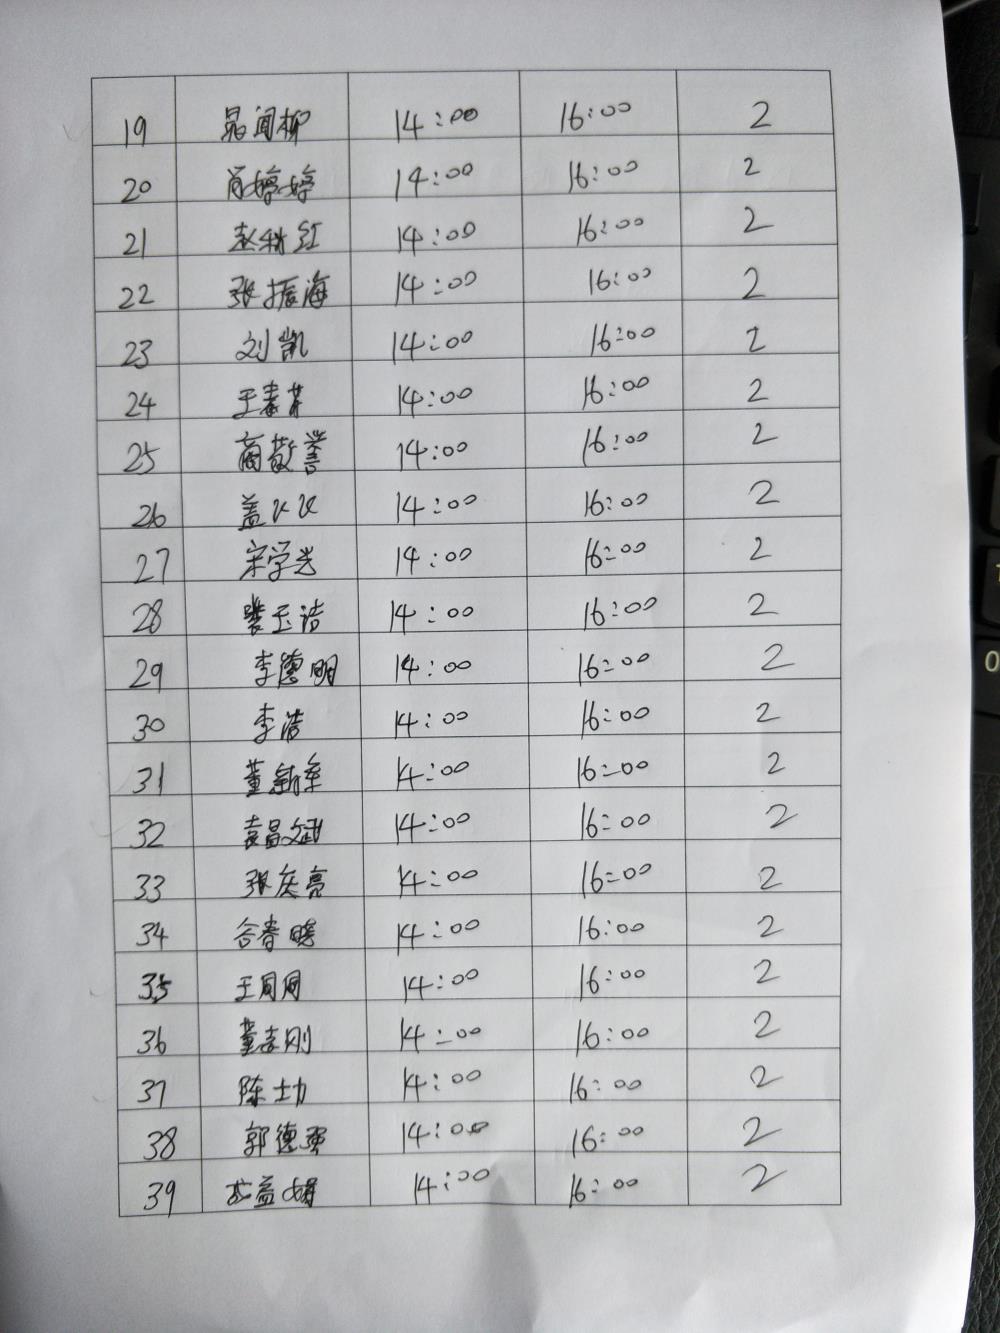 19 闻柳 14:00 16:00 2
20 肖婷婷 14:00 16:00 2
21 赵红 14:00 16:00 2
22 张振海 14:00 16:00 2
23 刘凯 14:00 16:00 2
24 王春 14:00 16:00 2
25 商敬 14:00 16:00 2
26 盖 14:00 16:00 2
27 宋学光 14:00 16:00 2
28 裴玉洁 14:00 16:00 2
29 李德明 14:00 16:00 2
30 李洁 14:00 16:00 2
31 董 14:00 16:00 2
32 袁昌斌 14:00 16:00 2
33 张庆亮 14:00 16:00 2
34 谷春晓 14:00 16:00 2
35 王同同 14:00 16:00 2
36 董志刚 14:00 16:00 2
37 陈士力 14:00 16:00 2
38 郭德强 14:00 16:00 2
39 益娟 14:00 16:00 2
0